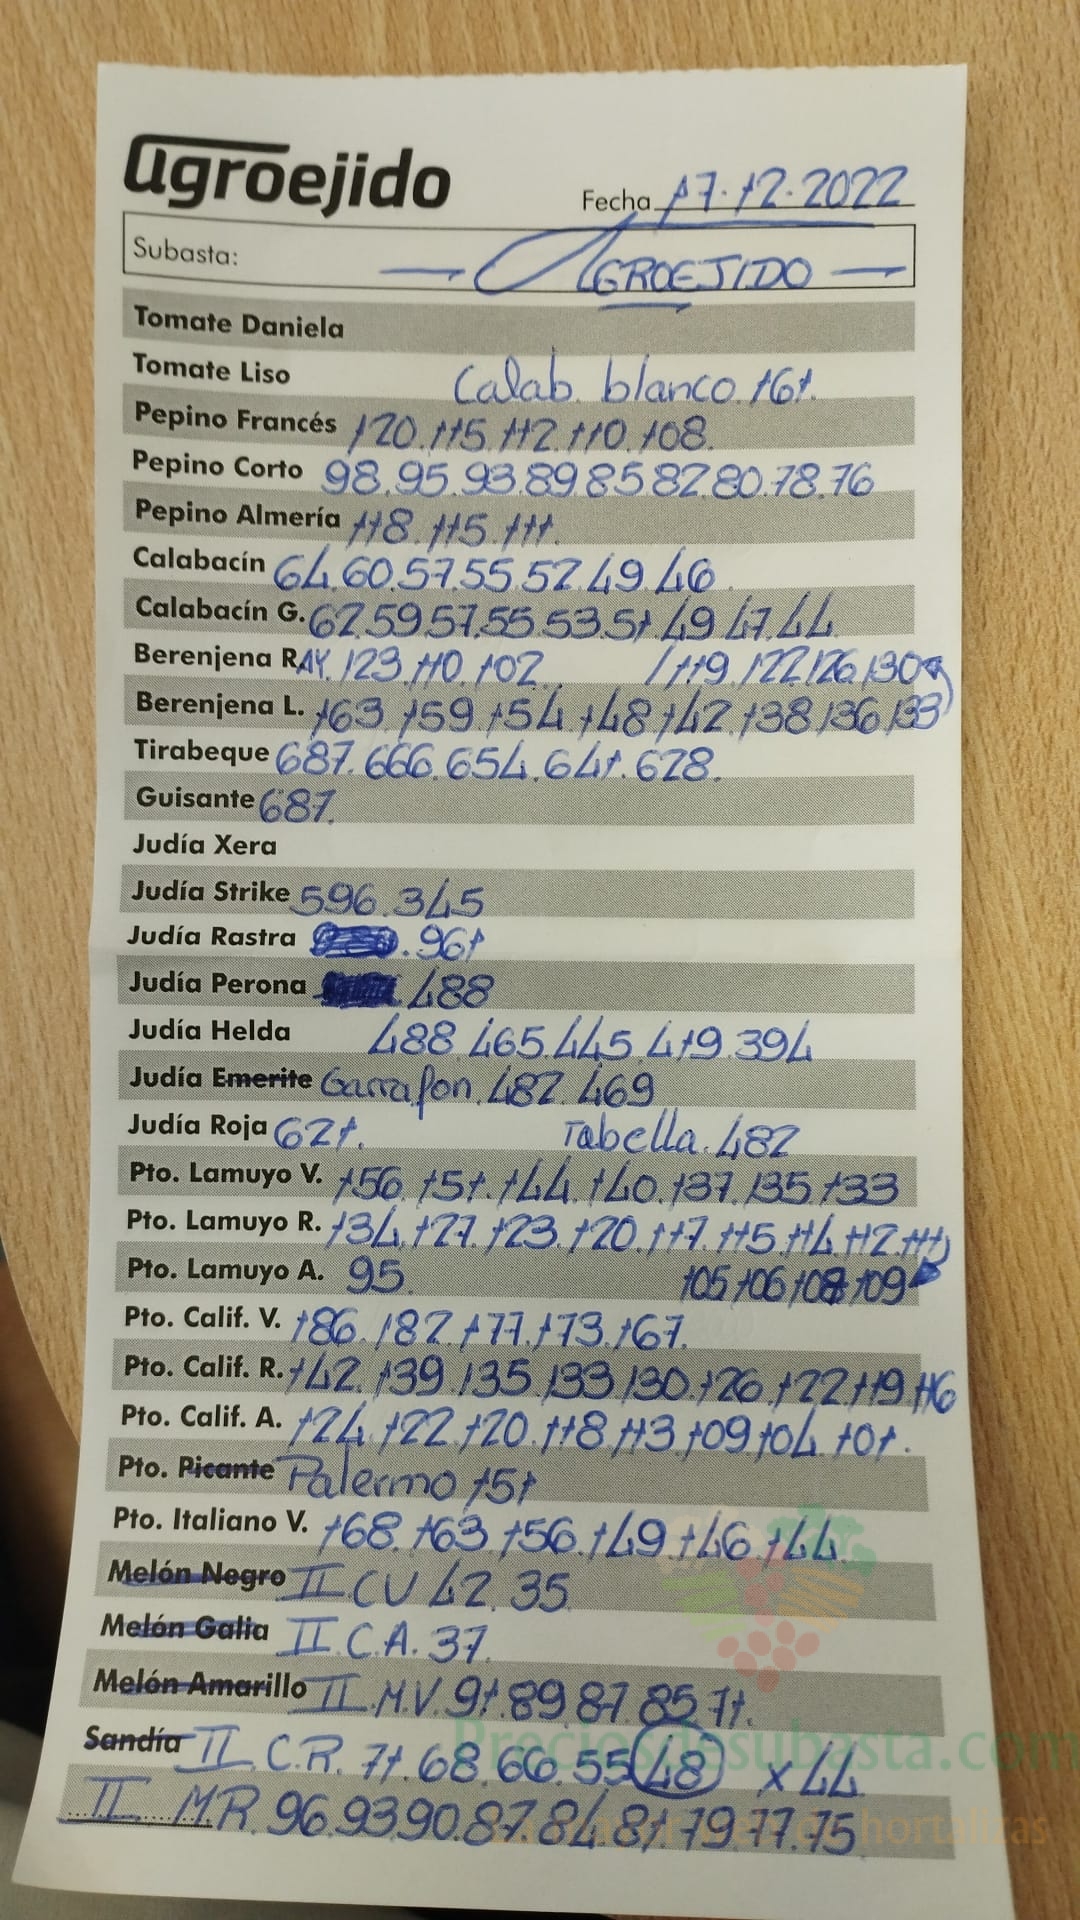 agroejido
Fecha 17-12-2022
Subasta: — AGROEJIDO —
Tomate Daniela
Tomate Liso Calab. blanco. 161.
Pepino Francés 120. 115. 112. 110. 108.
Pepino Corto 98. 95. 93. 89 85 82. 80. 78. 76
Pepino Almería 118. 115. 111.
Calabacín 64. 60. 57. 55. 52. 49. 46.
Calabacín G. 62. 59. 57. 55. 53. 51. 49 47. 44
Berenjena RAY. 123. 110. 102 / 119. 122. 126. 130
Berenjena L. 163. 159. 154. 148. 142. 138. 136. 133
Tirabeque 687. 666. 654. 641. 628.
Guisante 687.
Judía Xera
Judía Strike 596. 345
Judía Rastra . 961
Judía Perona . 488
Judía Helda 488. 465. 445. 419. 394
Judía Emerite Garrafon. 482. 469
Judía Roja 621. Tabella. 482
Pto. Lamuyo V. 156. 151. 144. 140. 137. 135. 133
Pto. Lamuyo R. 134. 127. 123. 120. 117. 115. 114. 112. 111
Pto. Lamuyo A. 95. 105 106 108 109
Pto. Calif. V. 186. 182. 177. 173. 167.
Pto. Calif. R. 142. 139. 135. 133. 130. 126. 122. 119. 116
Pto. Calif. A. 124. 122. 120. 118. 113. 109. 104. 101.
Pto. Picante Palermo 151
Pto. Italiano V. 168. 163. 156. 149. 146. 144.
Melón Negro II CU 42. 35
Melón Galia II. C.A. 37.
Melón Amarillo II. M.V. 91. 89. 87. 85. 71.
Sandía II C.R. 71. 68. 66. 55. 48 x 44
II MR. 96. 93. 90. 87. 84. 81. 79. 77. 75
Preciosdesubasta.com
hortalizas